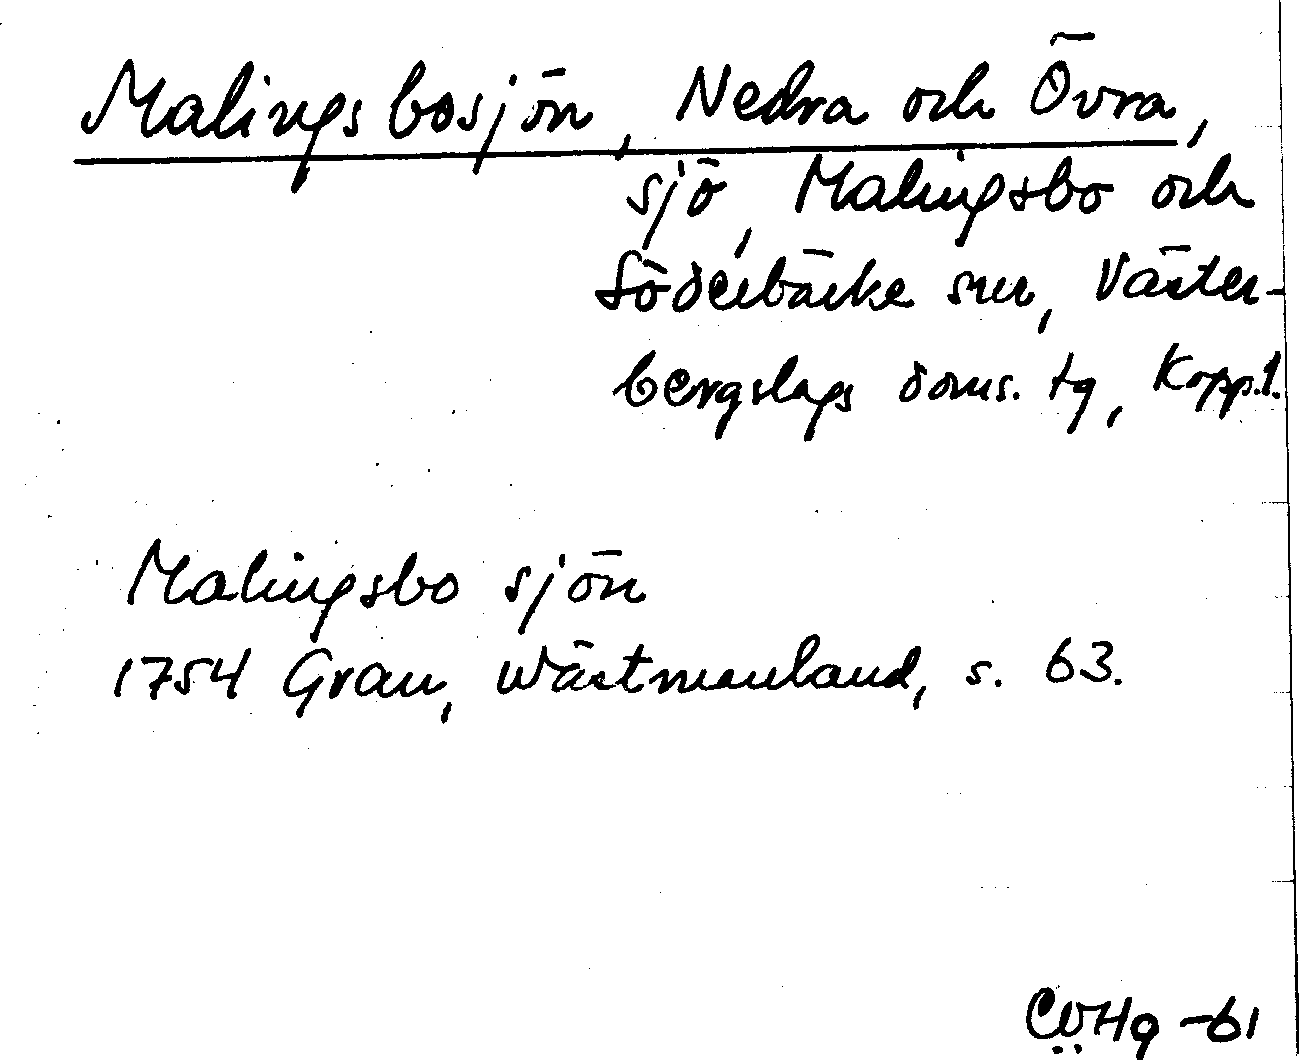 Malingsbosjön, Nedra och Övra,
sjö, Malingsbo och
Söderbärke snr, Väster-
bergslags doms. tg, Kopp.l.
Malingsbo sjön
1754 Grau, Wästmanland, s. 63.
-61